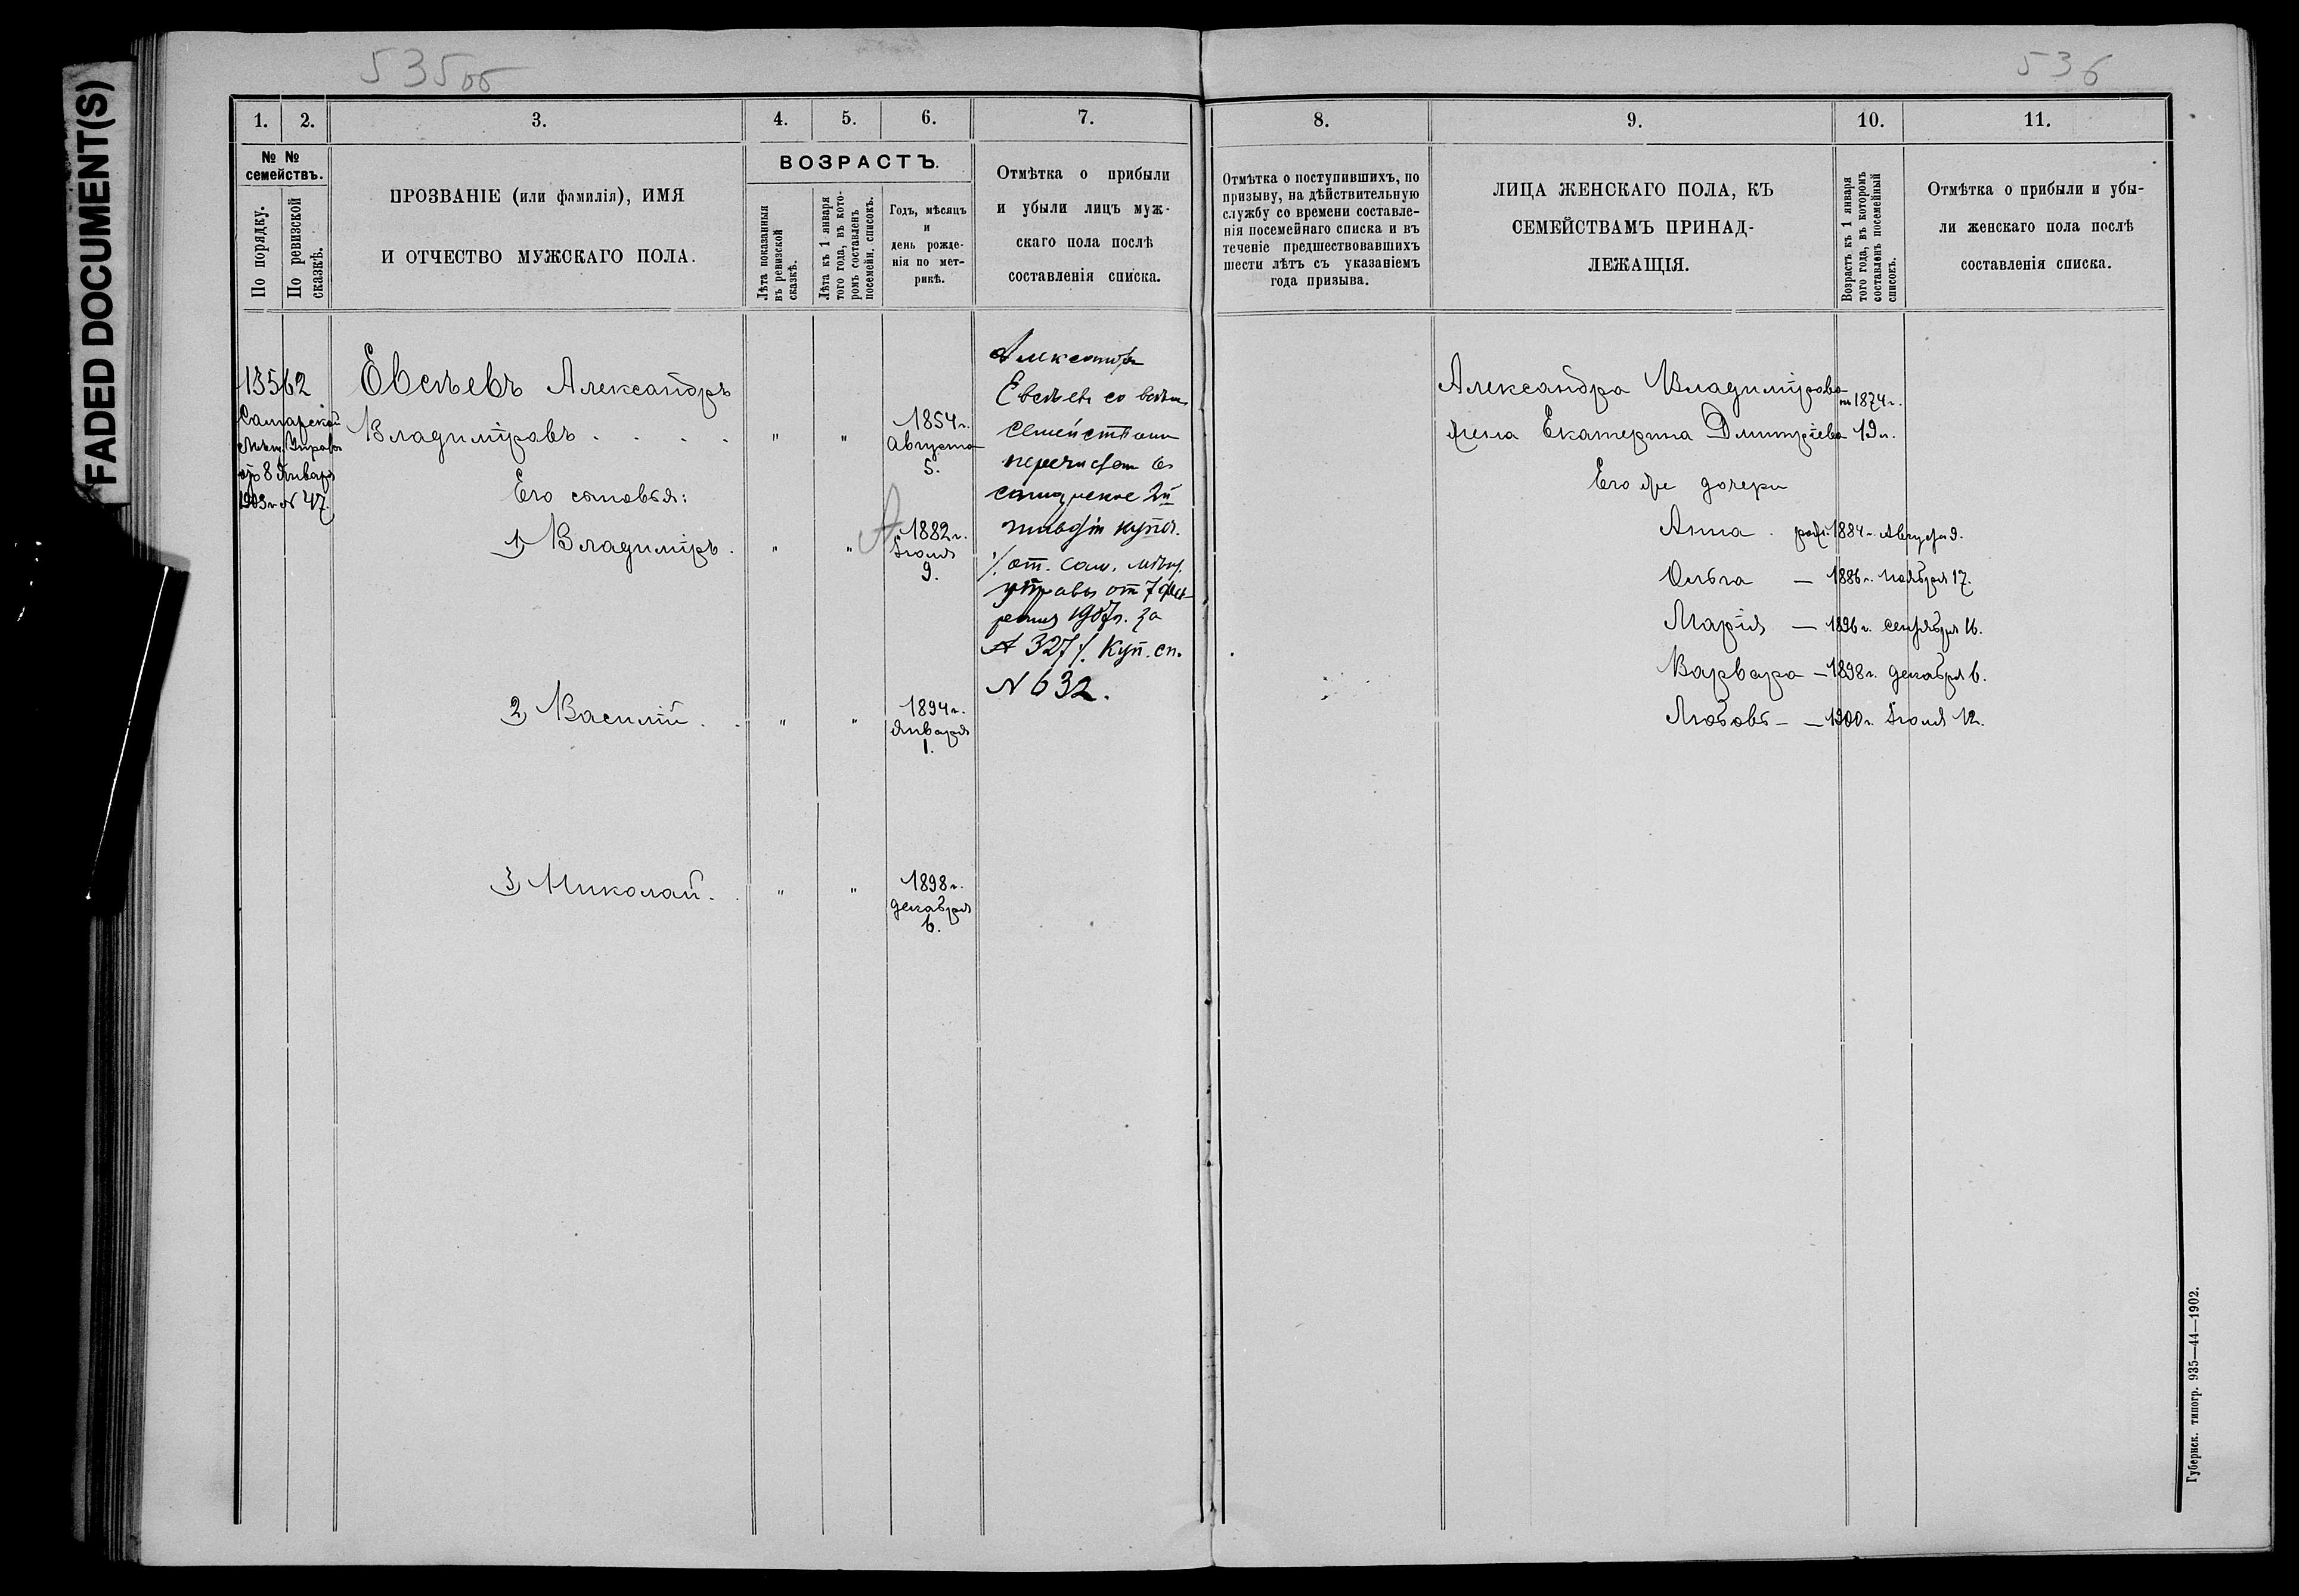 FADED DOCUMENT(S)
535об
536
1. 2. 3. 4. 5. 6. 7.
№ №
семействъ.
По порядку.
По ревизской
сказкѣ.
ПРОЗВАНІЕ (или фамилія), ИМЯ
И ОТЧЕСТВО МУЖСКАГО ПОЛА.
ВОЗРАСТЪ.
Лѣта показанныя
въ ревизской
сказкѣ.
Лѣта къ 1 января
того года, въ кото-
ромъ составленъ
посемейн. списокъ.
Годъ, мѣсяцъ
и
день рожде-
нія по мет-
рикѣ.
Отмѣтка о прибыли
и убыли лицъ муж-
скаго пола послѣ
составленія списка.
13562
Самарской
Мѣщ. Управы
отъ 8 Января
1903 г. № 47.
Евсѣевъ Александръ
Владиміровъ . . . . " "
1854 г.
Августа
5.
Его сыновья:
1) Владиміръ. " "
1882 г.
Іюля
9.
2) Василій. . " "
1894 г.
Января
1.
3) Николай. . " "
1898 г.
декабря
6.
Александръ
Евсѣевъ со всѣмъ
семействомъ
перечисленъ въ
самарские 2й
гильдіи купцы.
/. от. Сам. мѣщ.
управы от 7 фев-
1907 г. за
№ 327 /. Куп. сп.
№ 632.
8. 9. 10. 11.
Отмѣтка о поступившихъ, по
призыву, на дѣйствительную
службу со времени составле-
нія посемейнаго списка и въ
теченіе предшествовавшихъ
шести лѣтъ съ указаніемъ
года призыва.
ЛИЦА ЖЕНСКАГО ПОЛА, КЪ
СЕМЕЙСТВАМЪ ПРИНАД-
ЛЕЖАЩІЯ.
Возрастъ къ 1 января
того года, въ которомъ
составленъ посемейный
списокъ.
Отмѣтка о прибыли и убы-
ли женскаго пола послѣ
составленія списка.
Александра Владимірова 1874 г.
жена Екатерина Дмитріева 19 л.
Его же дочери
Анна . род. 1884 г. Августа 9.
Ольга — 1886 г. Ноября 17.
Марія — 1896 г. сентября 16.
Варвара — 1898 г. декабря 6.
Любовь — — 1900 г. Іюля 12.
Губернск. типогр. 935—44—1902.